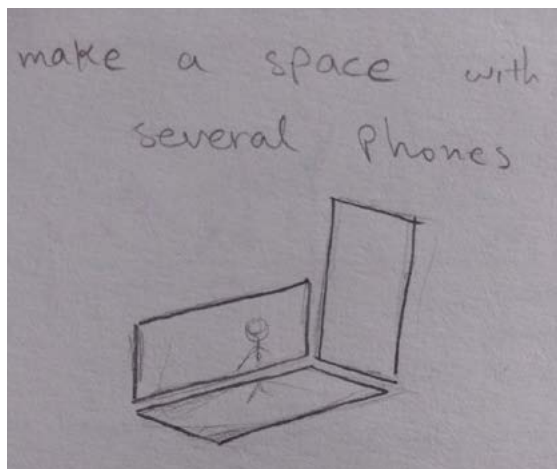 make a space with
several phones